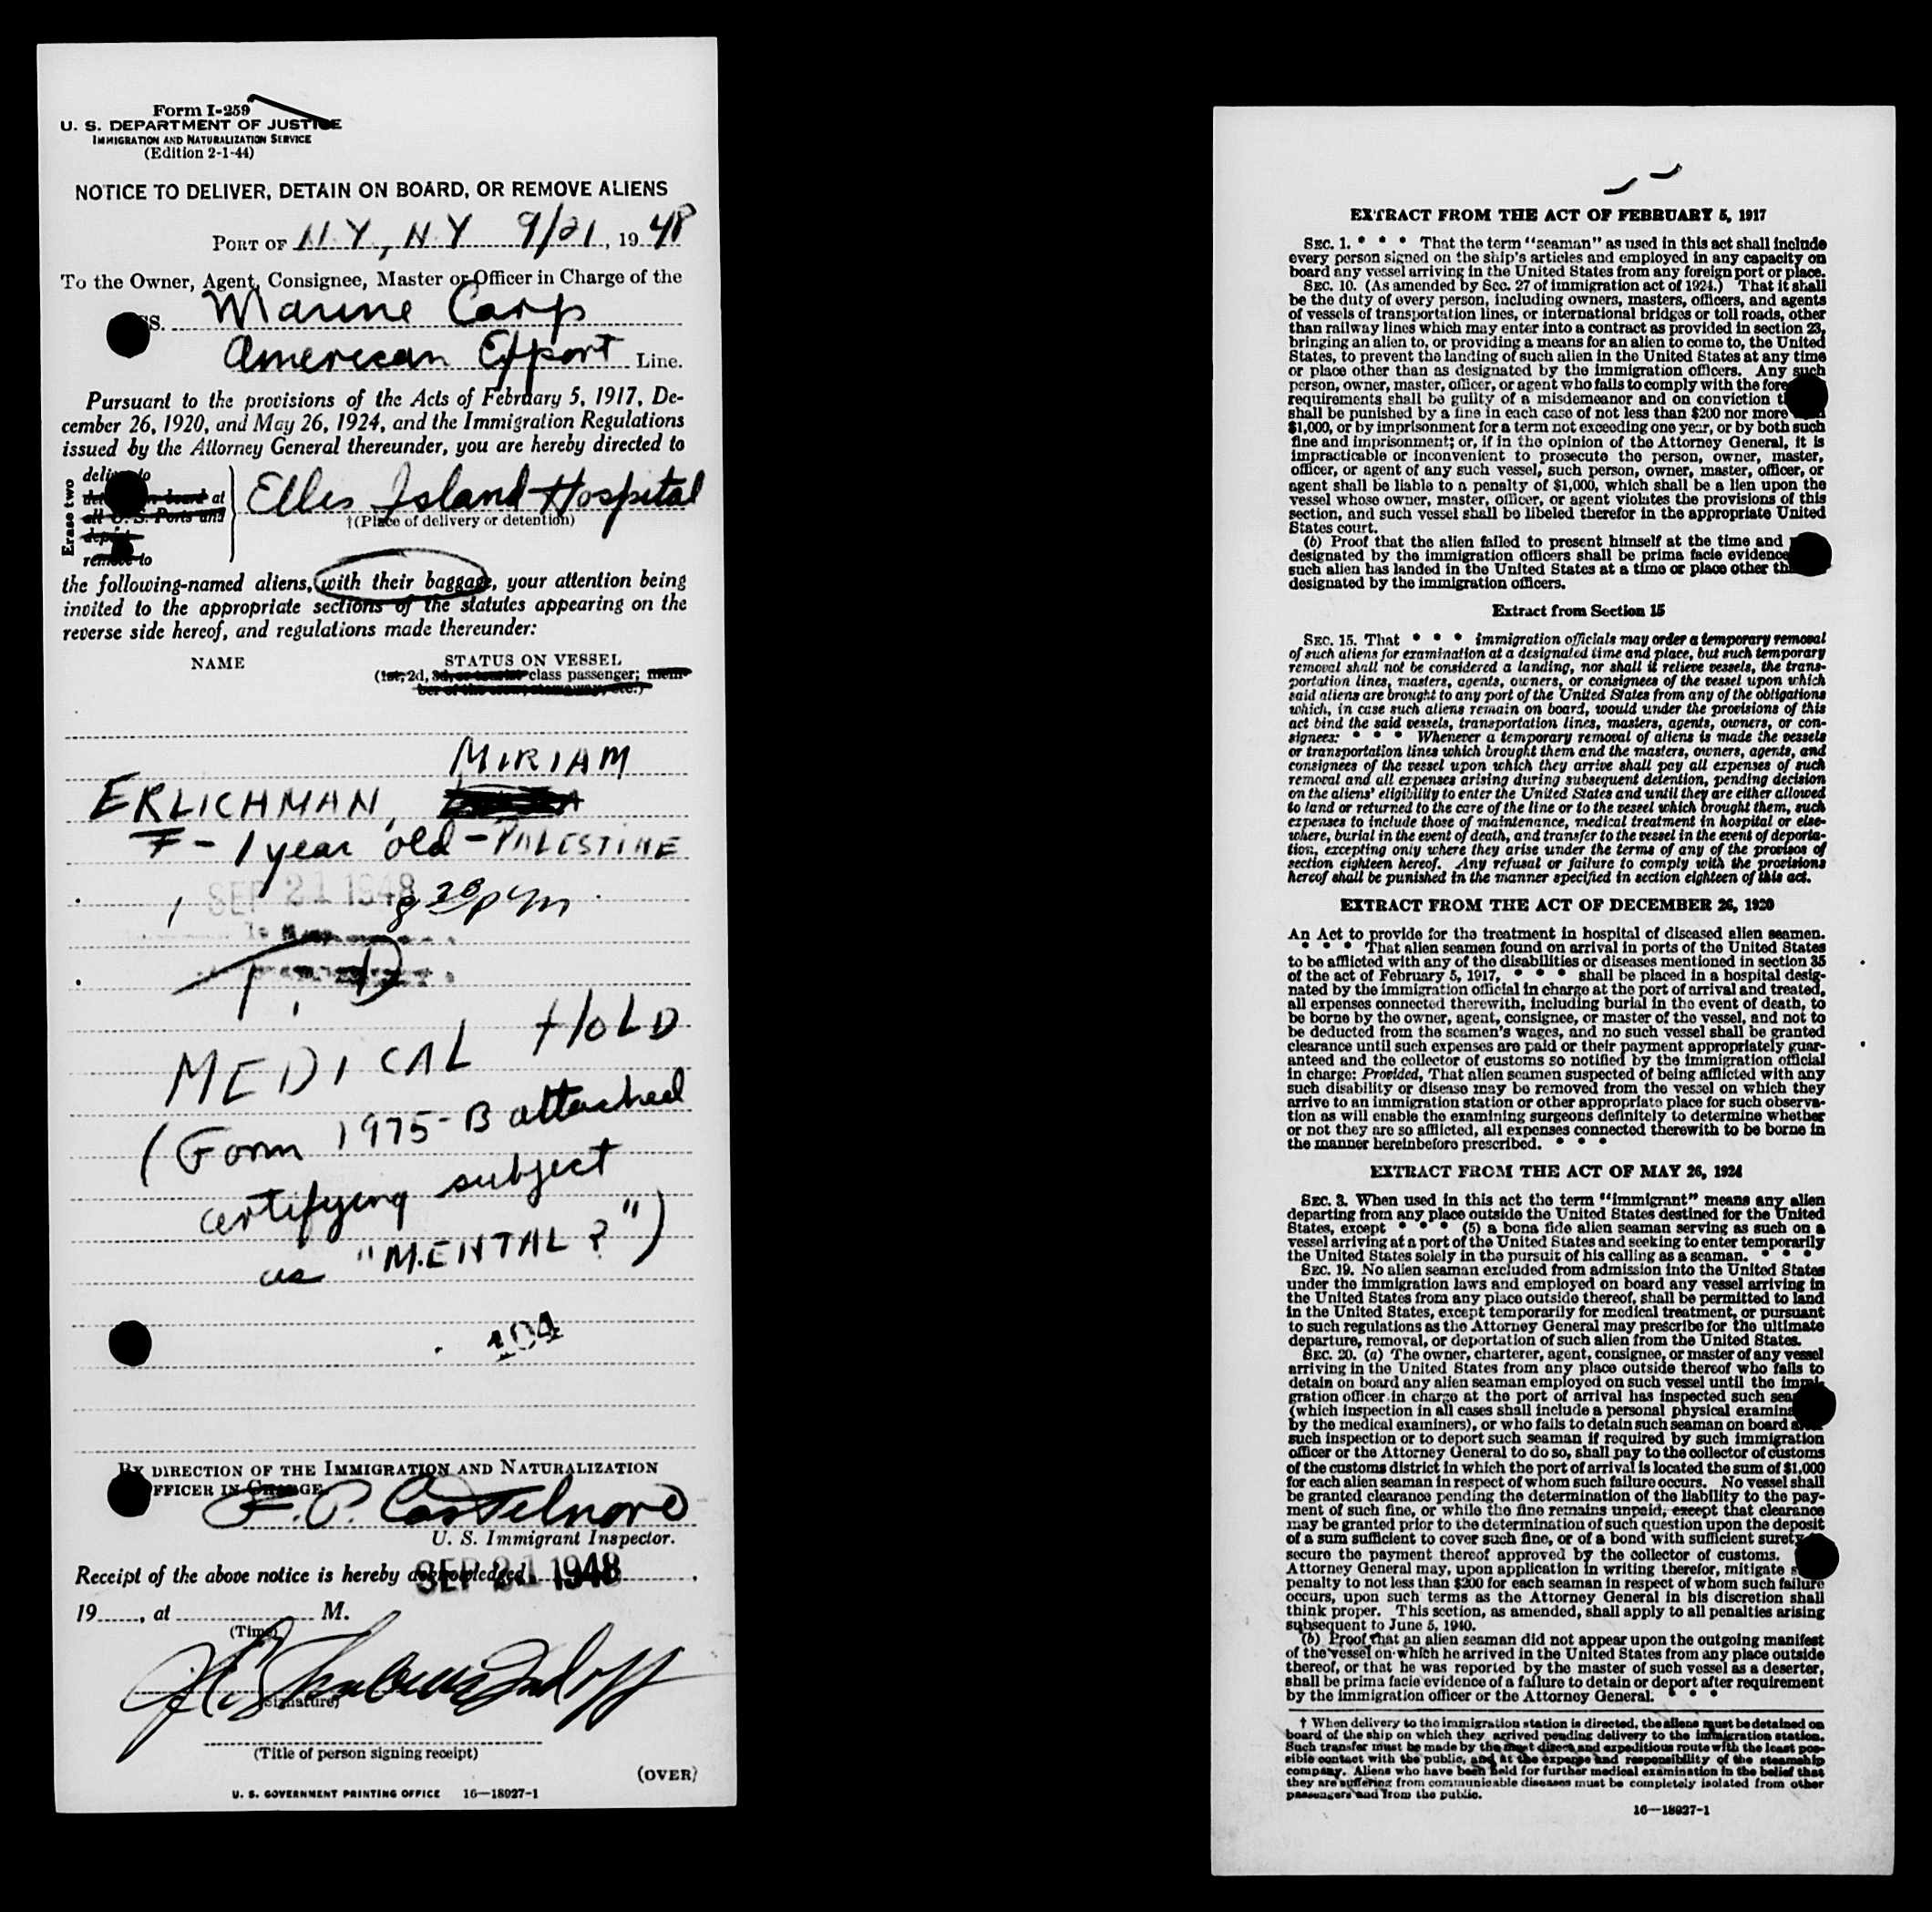 Form I-259
U. S. DEPARTMENT OF JUSTICE
IMMIGRATION AND NATURALIZATION SERVICE
(Edition 2-1-44)
NOTICE TO DELIVER, DETAIN ON BOARD, OR REMOVE ALIENS
PORT OF N.Y., N.Y 9/21, 1948
To the Owner, Agent, Consignee, Master or Officer in Charge of the
SS. Marine Carp
American Export Line.
Pursuant to the provisions of the Acts of February 5, 1917, De-
cember 26, 1920, and May 26, 1924, and the Immigration Regulations
issued by the Attorney General thereunder, you are hereby directed to
Erase two
at
all U. S. Ports and
remove to
Ellis Island Hospital
†(Place of delivery or detention)
the following-named aliens, with their baggage, your attention being
invited to the appropriate sections of the statutes appearing on the
reverse side hereof, and regulations made thereunder:
NAME STATUS ON VESSEL
(1st, 2d, 3d, or tourist class passenger; mem-
ber of the crew, stowaway, etc.)
MIRIAM
ERLICHMAN,
F - 1 year old - PALESTINE
1 SEP 21 1948 8 30 pm
T. D
MEDICAL HOLD
(Form 1975-B attached
certifying subject
as "MENTAL?")
104
BY DIRECTION OF THE IMMIGRATION AND NATURALIZATION
OFFICER IN CHARGE.
U. S. Immigrant Inspector.
Receipt of the above notice is hereby acknowledged SEP 21 1948
19......, at .................... M.
(Time)
(Signature)
(Title of person signing receipt)
(OVER)
U. S. GOVERNMENT PRINTING OFFICE 16—18027-1
EXTRACT FROM THE ACT OF FEBRUARY 5, 1917
SEC. 1. * * * That the term "seaman" as used in this act shall include
every person signed on the ship's articles and employed in any capacity on
board any vessel arriving in the United States from any foreign port or place.
SEC. 10. (As amended by Sec. 27 of immigration act of 1924.) That it shall
be the duty of every person, including owners, masters, officers, and agents
of vessels of transportation lines, or international bridges or toll roads, other
than railway lines which may enter into a contract as provided in section 23,
bringing an alien to, or providing a means for an alien to come to, the United
States, to prevent the landing of such alien in the United States at any time
or place other than as designated by the immigration officers. Any such
person, owner, master, officer, or agent who fails to comply with the fore
requirements shall be guilty of a misdemeanor and on conviction
shall be punished by a fine in each case of not less than $200 nor more
$1,000, or by imprisonment for a term not exceeding one year, or by both such
fine and imprisonment; or, if in the opinion of the Attorney General, it is
impracticable or inconvenient to prosecute the person, owner, master,
officer, or agent of any such vessel, such person, owner, master, officer, or
agent shall be liable to a penalty of $1,000, which shall be a lien upon the
vessel whose owner, master, officer, or agent violates the provisions of this
section, and such vessel shall be libeled therefor in the appropriate United
States court.
(b) Proof that the alien failed to present himself at the time and
designated by the immigration officers shall be prima facie evidence
such alien has landed in the United States at a time or place other
designated by the immigration officers.
Extract from Section 15
SEC. 15. That * * * immigration officials may order a temporary removal
of such aliens for examination at a designated time and place, but such temporary
removal shall not be considered a landing, nor shall it relieve vessels, the trans-
portation lines, masters, agents, owners, or consignees of the vessel upon which
said aliens are brought to any port of the United States from any of the obligations
which, in case such aliens remain on board, would under the provisions of this
act bind the said vessels, transportation lines, masters, agents, owners, or con-
signees: * * * Whenever a temporary removal of aliens is made the vessels
or transportation lines which brought them and the masters, owners, agents, and
consignees of the vessel upon which they arrive shall pay all expenses of such
removal and all expenses arising during subsequent detention, pending decision
on the aliens' eligibility to enter the United States and until they are either allowed
to land or returned to the care of the line or to the vessel which brought them, such
expenses to include those of maintenance, medical treatment in hospital or else-
where, burial in the event of death, and transfer to the vessel in the event of deporta-
tion, excepting only where they arise under the terms of any of the provisos of
section eighteen hereof. Any refusal or failure to comply with the provisions
hereof shall be punished in the manner specified in section eighteen of this act.
EXTRACT FROM THE ACT OF DECEMBER 26, 1920
An Act to provide for the treatment in hospital of diseased alien seamen.
* * * That alien seamen found on arrival in ports of the United States
to be afflicted with any of the disabilities or diseases mentioned in section 35
of the act of February 5, 1917, * * * shall be placed in a hospital desig-
nated by the immigration official in charge at the port of arrival and treated,
all expenses connected therewith, including burial in the event of death, to
be borne by the owner, agent, consignee, or master of the vessel, and not to
be deducted from the seamen's wages, and no such vessel shall be granted
clearance until such expenses are paid or their payment appropriately guar-
anteed and the collector of customs so notified by the immigration official
in charge: Provided, That alien seamen suspected of being afflicted with any
such disability or disease may be removed from the vessel on which they
arrive to an immigration station or other appropriate place for such observa-
tion as will enable the examining surgeons definitely to determine whether
or not they are so afflicted, all expenses connected therewith to be borne in
the manner hereinbefore prescribed. * * *
EXTRACT FROM THE ACT OF MAY 26, 1924
SEC. 3. When used in this act the term "immigrant" means any alien
departing from any place outside the United States destined for the United
States, except * * * (5) a bona fide alien seaman serving as such on a
vessel arriving at a port of the United States and seeking to enter temporarily
the United States solely in the pursuit of his calling as a seaman. * * *
SEC. 19. No alien seaman excluded from admission into the United States
under the immigration laws and employed on board any vessel arriving in
the United States from any place outside thereof, shall be permitted to land
in the United States, except temporarily for medical treatment, or pursuant
to such regulations as the Attorney General may prescribe for the ultimate
departure, removal, or deportation of such alien from the United States.
SEC. 20. (a) The owner, charterer, agent, consignee, or master of any vessel
arriving in the United States from any place outside thereof who fails to
detain on board any alien seaman employed on such vessel until the immi-
gration officer in charge at the port of arrival has inspected such
(which inspection in all cases shall include a personal physical
by the medical examiners), or who fails to detain such seaman on board
such inspection or to deport such seaman if required by such immigration
officer or the Attorney General to do so, shall pay to the collector of customs
of the customs district in which the port of arrival is located the sum of $1,000
for each alien seaman in respect of whom such failure occurs. No vessel shall
be granted clearance pending the determination of the liability to the pay-
ment of such fine, or while the fine remains unpaid, except that clearance
may be granted prior to the determination of such question upon the deposit
of a sum sufficient to cover such fine, or of a bond with sufficient surety
secure the payment thereof approved by the collector of customs.
Attorney General may, upon application in writing therefor, mitigate
penalty to not less than $200 for each seaman in respect of whom such failure
occurs, upon such terms as the Attorney General in his discretion shall
think proper. This section, as amended, shall apply to all penalties arising
subsequent to June 5, 1940.
(b) Proof that an alien seaman did not appear upon the outgoing manifest
of the vessel on which he arrived in the United States from any place outside
thereof, or that he was reported by the master of such vessel as a deserter,
shall be prima facie evidence of a failure to detain or deport after requirement
by the immigration officer or the Attorney General. * * *
† When delivery to the immigration station is directed, the aliens must be detained on
board of the ship on which they arrived pending delivery to the immigration station.
Such transfer must be made by the most direct and expeditious route with the least pos-
sible contact with the public, and at the expense and responsibility of the steamship
company. Aliens who have been held for further medical examination in the belief that
they are suffering from communicable diseases must be completely isolated from other
passengers and from the public.
16—18027-1